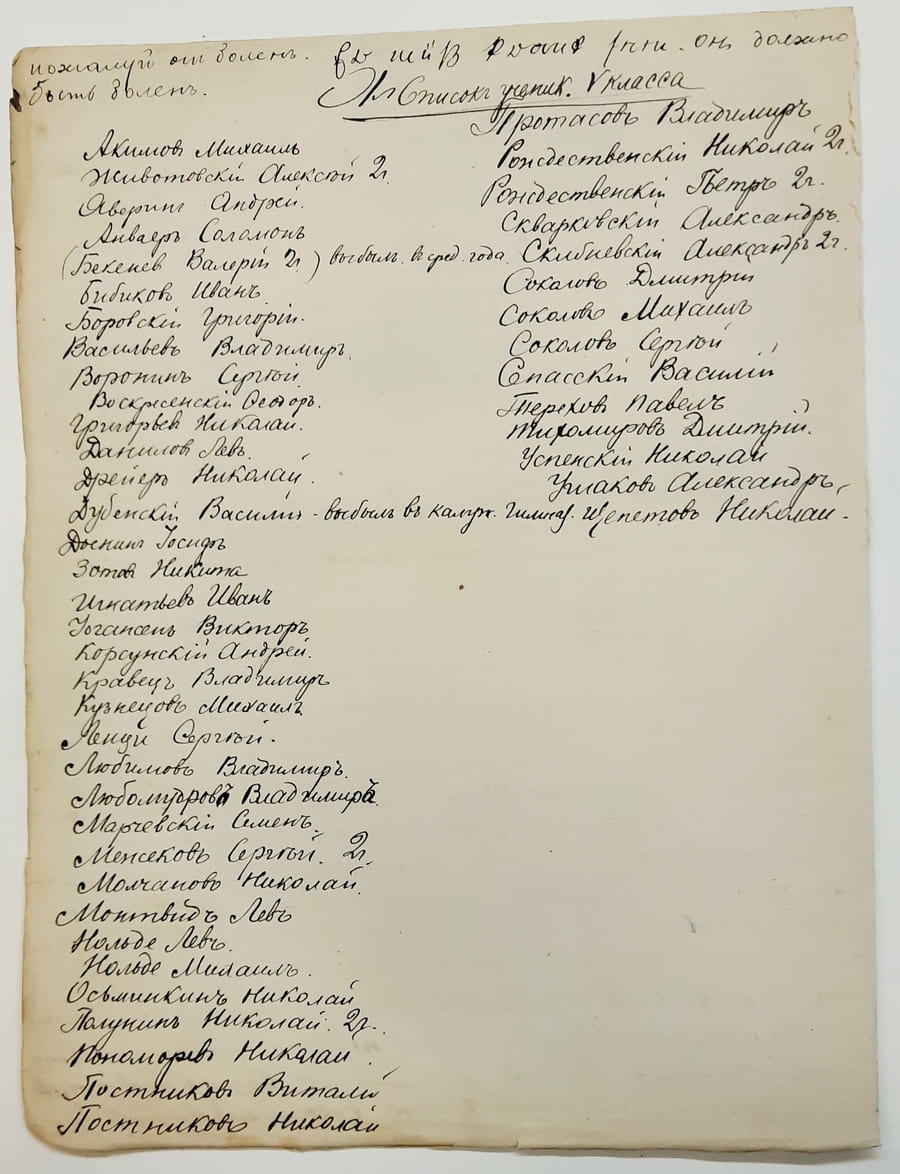 пожалуй онъ боленъ. онъ должно
быть боленъ.
Списокъ ученик. V класса
Акимовъ Михаилъ
Животовскій Алексѣй 2г.
Аверинъ Андрей.
Анваеръ Соломонъ
(Бекеневъ Валерій 2г.) выбылъ въ сред. года.
Бибиковъ Иванъ
Боровскій Григорій.
Васильевъ Владимиръ.
Воронинъ Сергѣй.
Воскресенскій Ѳеодоръ.
Григорьевъ Николай.
Даниловъ Левъ.
Дрейеръ Николай.
Дубенскій Василій - выбылъ въ калуж. гимназ.
Іосифъ
Зотовъ Никита
Игнатьевъ Иванъ
Іогансенъ Викторъ
Корсунскій Андрей.
Кравецъ Владимиръ
Кузнецовъ Михаилъ
Сергѣй.
Любимовъ Владимиръ.
Любомудровъ Владимиръ.
Марчевскій Семенъ.
Менсековъ Сергѣй. 2г.
Молчановъ Николай.
Монтвидъ Левъ
Нольде Левъ.
Нольде Михаилъ.
Осьминкинъ Николай
Полунинъ Николай. 2г.
Пономоревъ Николай.
Постниковъ Виталій
Постниковъ Николай
Протасовъ Владимиръ
Рождественскій Николай 2г.
Рождественскій Петръ 2г.
Скварковскій Александръ.
Склбневскій Александръ 2г.
Соколовъ Дмитрій
Соколовъ Михаилъ
Соколовъ Сергѣй
Спасскій Василій
Тереховъ Павелъ
Тихомировъ Дмитрій.
Успенскій Николай
Ушаковъ Александръ.
Щепетовъ Николай.